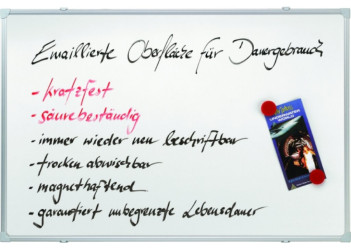 Emaillierte Oberfläche für Dauergebrauch
- kratzfest
- säurebeständig
- immer wieder neu beschriftbar
- trocken abwischbar
- magnethaftend
- garantiert unbegrenzte Lebensdauer